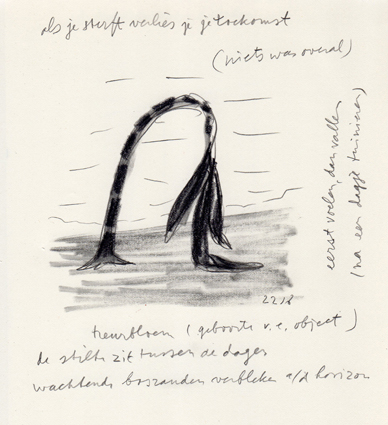 als je sterft verlies je je toekomst
(niets was overal)
eerst voelen, dan vallen
(na een dagje tuinieren)
2218
treurbloem (geboorte v.e. object)
de stilte zit tussen de dagen
wachtende boszanden verbleken a/d horizon